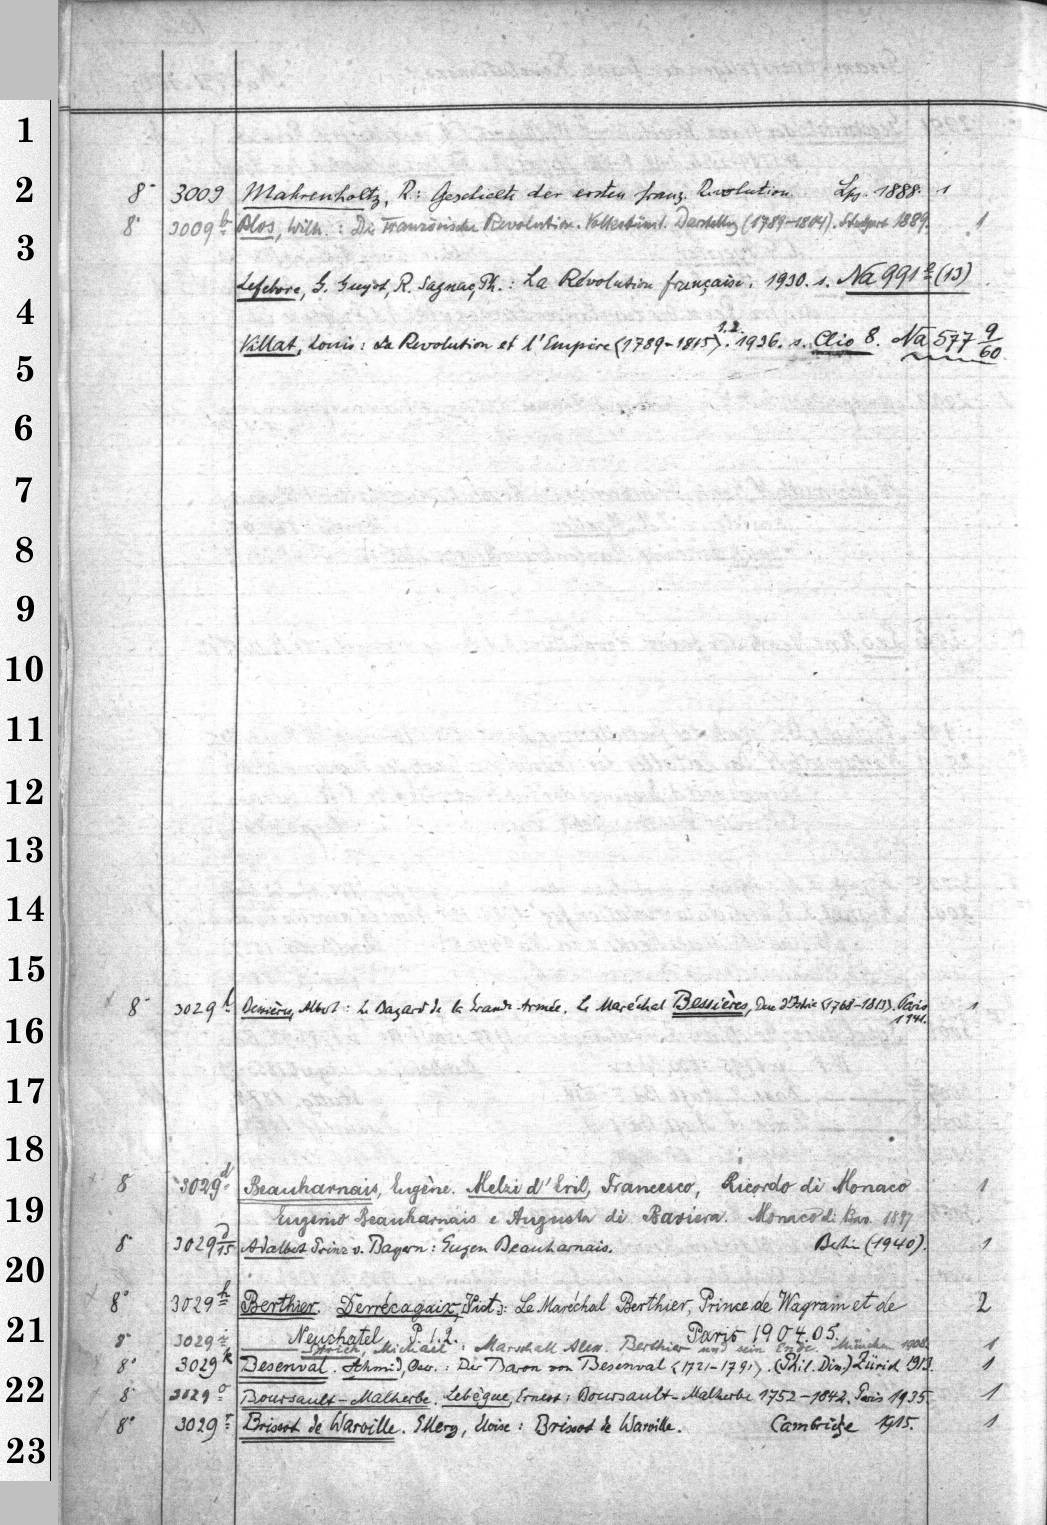 1
2
3
4
5
6
7
8
9
10
11
12
13
14
15
16
17
18
19
20
21
22
23
8° 3009 Mahrenholtz, R: Geschichte der ersten franz. Revolution. Lpz. 1888. 1
8° 3009 b Blos, Wilh.: Die Französische Revolution. Volkstüml. Darstellg (1789-1804). Stuttgart 1889. 1
Lefebvre, G. Guyot, R. Sagnac, Ph.: La Révolution française. 1930. s. Na 991 a (13)
Villat, Louis: La Revolution et l'Empire <1789-1815>. 1.2. 1936. s. Clio 8. Na 577 9/60
8° 3029 Albert: Le Bayard de la Grande Armée. Le Maréchal Bessières, Duc d'Istrie <1768-1813>. Paris
1941. 1
8° 3029 d Beauharnais, Eugène. Melzi d'Eril, Francesco, Ricordo di Monaco 1
Eugenio Beauharnais e Augusta di Baviera. Monaco di Bav. 1897
8° 3029 d/15 Adalbert Prinz v. Bayern: Eugen Beauharnais. Berlin (1940). 1
8° 3029 h Berthier. Derrécagaix, (Vict.): Le Maréchal Berthier, Prince de Wagram et de 2
Neuchatel P. 1.2. Paris 1904.05.
8° 3029 i Michael: Marschall Alex. Berthier und sein Ende. München 1908. 1
8° 3029 k Besenval. Schmid, Osw.: Der Baron von Besenval <1721-1791>. (Phil. Diss.) Zürich 1913. 1
8° 3029 o Boursault-Malherbe. Lebègue, Ernest: Boursault-Malherbe 1752-1842. Paris 1935. 1
8° 3029 r Brissot de Warville. Ellery, Eloise: Brissot de Warville. Cambridge 1915. 1